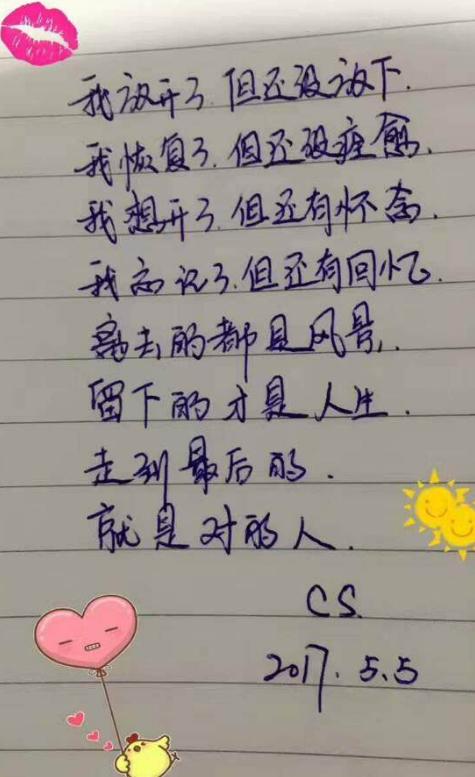 我放开了.但还没放下.
我恢复了.但还没痊愈.
我想开了.但还有怀念.
我忘记了.但还有回忆.
离去的都是风景.
留下的才是人生.
走到最后的.
就是对的人.
CS.
2017.5.5